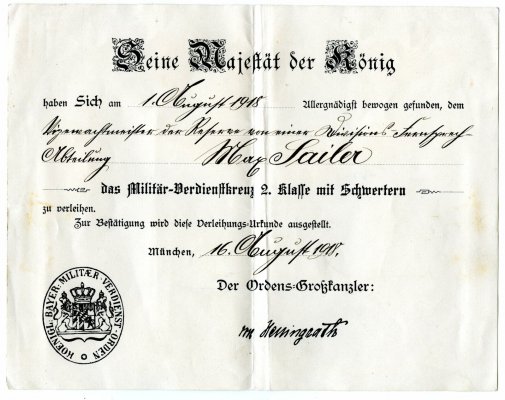 Seine Majestät der König
haben Sich am 1. August 1918 Allergnädigst bewogen gefunden, dem
Vizewachtmeister der Reserve von einer Divisions Fernsprech
Abteilung Max Sailer
das Militär-Verdienstkreuz 2. Klasse mit Schwertern
zu verleihen.
Zur Bestätigung wird diese Verleihungs-Urkunde ausgestellt.
München, 16. August 1918.
Der Ordens-Großkanzler:
KOENIGL. BAYER. MILITÆR-VERDIENST-ORDEN